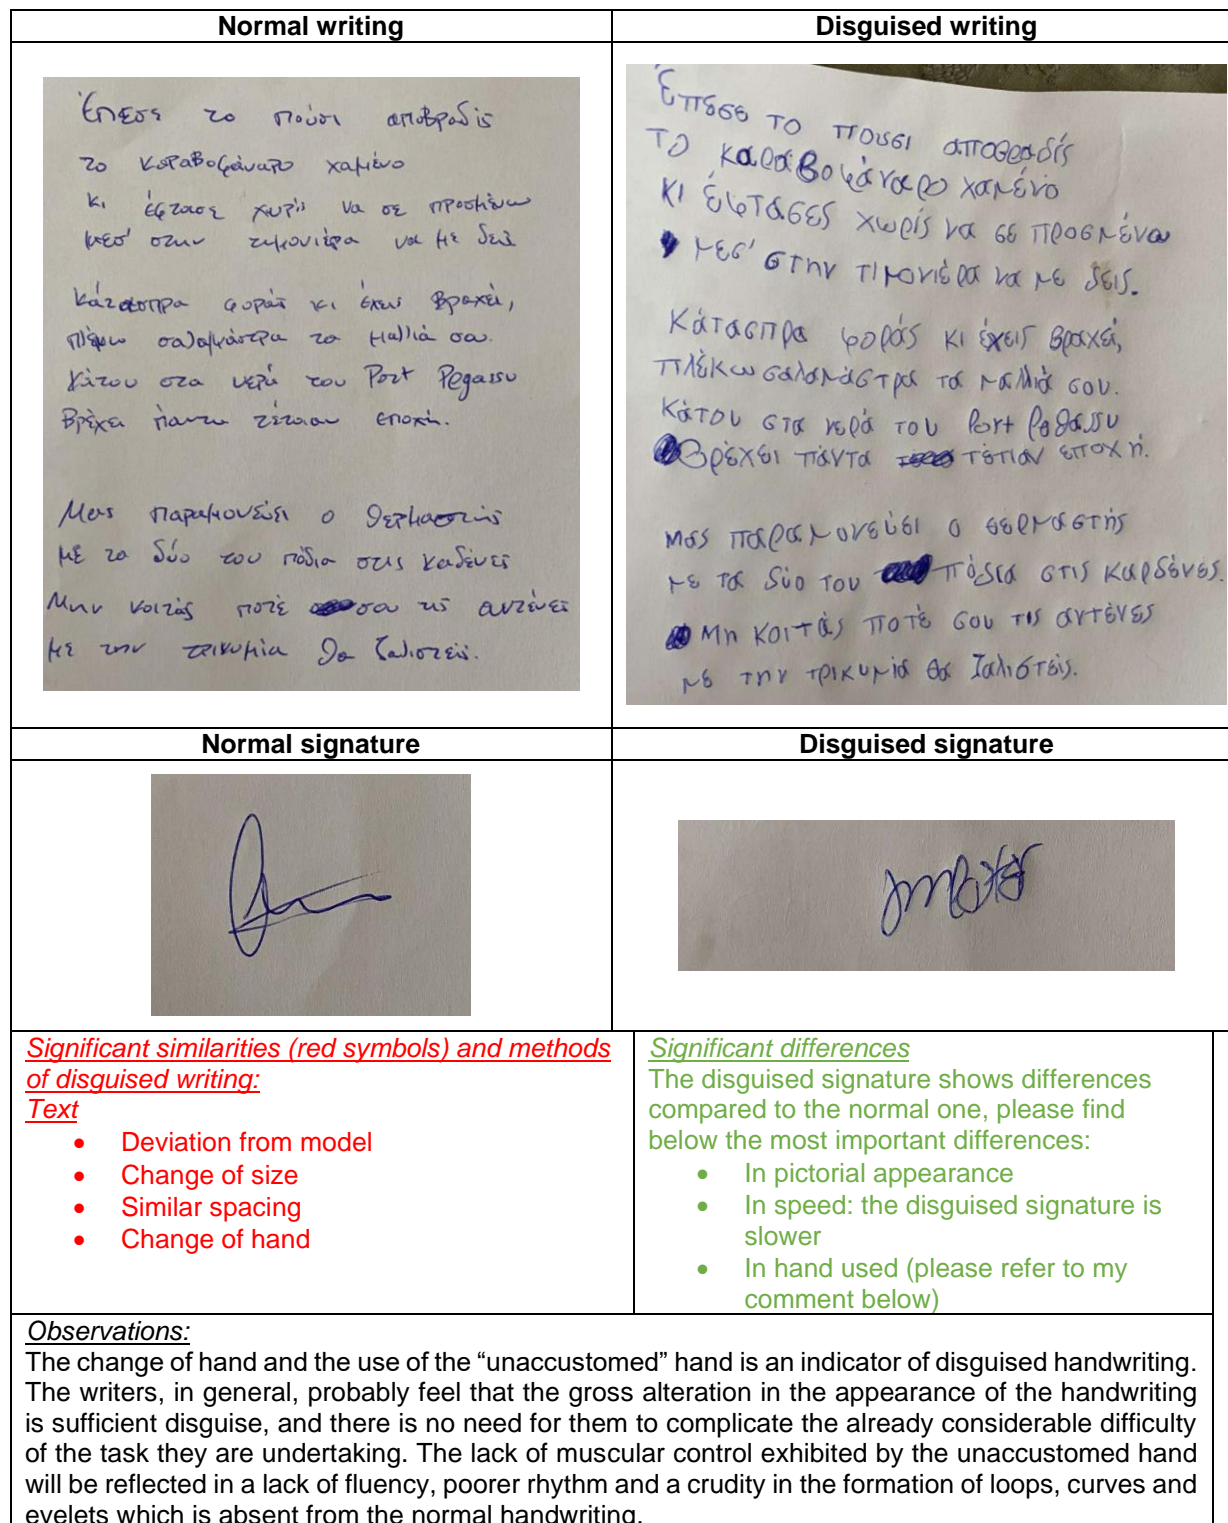 Normal writing
Disguised writing
Έπεσε το πούσι αποβραδίς
το καραβοφάναρο χαμένο
κι έφτασε χωρίς να σε προσμένω
μεσ' στην τιμονιέρα να με δεις
Κάτασπρα φοράς κι έχεις βραχεί,
πλέκω σαλαμάστρα τα μαλλιά σου.
Κάτου στα νερά του Port Pegassu
Βρέχει πάντα τέτοιαν εποχή.
Μας παραμονεύει ο θερμαστής
με τα δύο του πόδια στις καδένες
Μην κοιτάς ποτέ σου τις αντένες
με την τρικυμία θα ζαλιστείς.
Έπεσε το πουσι αποβραδίς
Το καραβοφάναρο χαμένο
κι έφτασες χωρίς να σε προσμένω
μεσ' στην τιμονιέρα να με δεις.
Κάτασπρα φοράς κι έχεις βραχεί,
πλέκω σαλαμάστρα τα μαλλιά σου.
Κάτου στα νερά του Port
Βρέχει πάντα τέτιαν εποχή.
Μας παραμονεύει ο θερμαστής
με τα δύο του πόδια στις καρδένες.
Μη κοιτάς ποτέ σου τις αντένες
με την τρικυμία θα ζαλιστείς.
Normal signature
Disguised signature
Significant similarities (red symbols) and methods
of disguised writing:
Text
• Deviation from model
• Change of size
• Similar spacing
• Change of hand
Significant differences
The disguised signature shows differences
compared to the normal one, please find
below the most important differences:
• In pictorial appearance
• In speed: the disguised signature is
slower
• In hand used (please refer to my
comment below)
Observations:
The change of hand and the use of the “unaccustomed” hand is an indicator of disguised handwriting.
The writers, in general, probably feel that the gross alteration in the appearance of the handwriting
is sufficient disguise, and there is no need for them to complicate the already considerable difficulty
of the task they are undertaking. The lack of muscular control exhibited by the unaccustomed hand
will be reflected in a lack of fluency, poorer rhythm and a crudity in the formation of loops, curves and
eyelets which is absent from the normal handwriting.